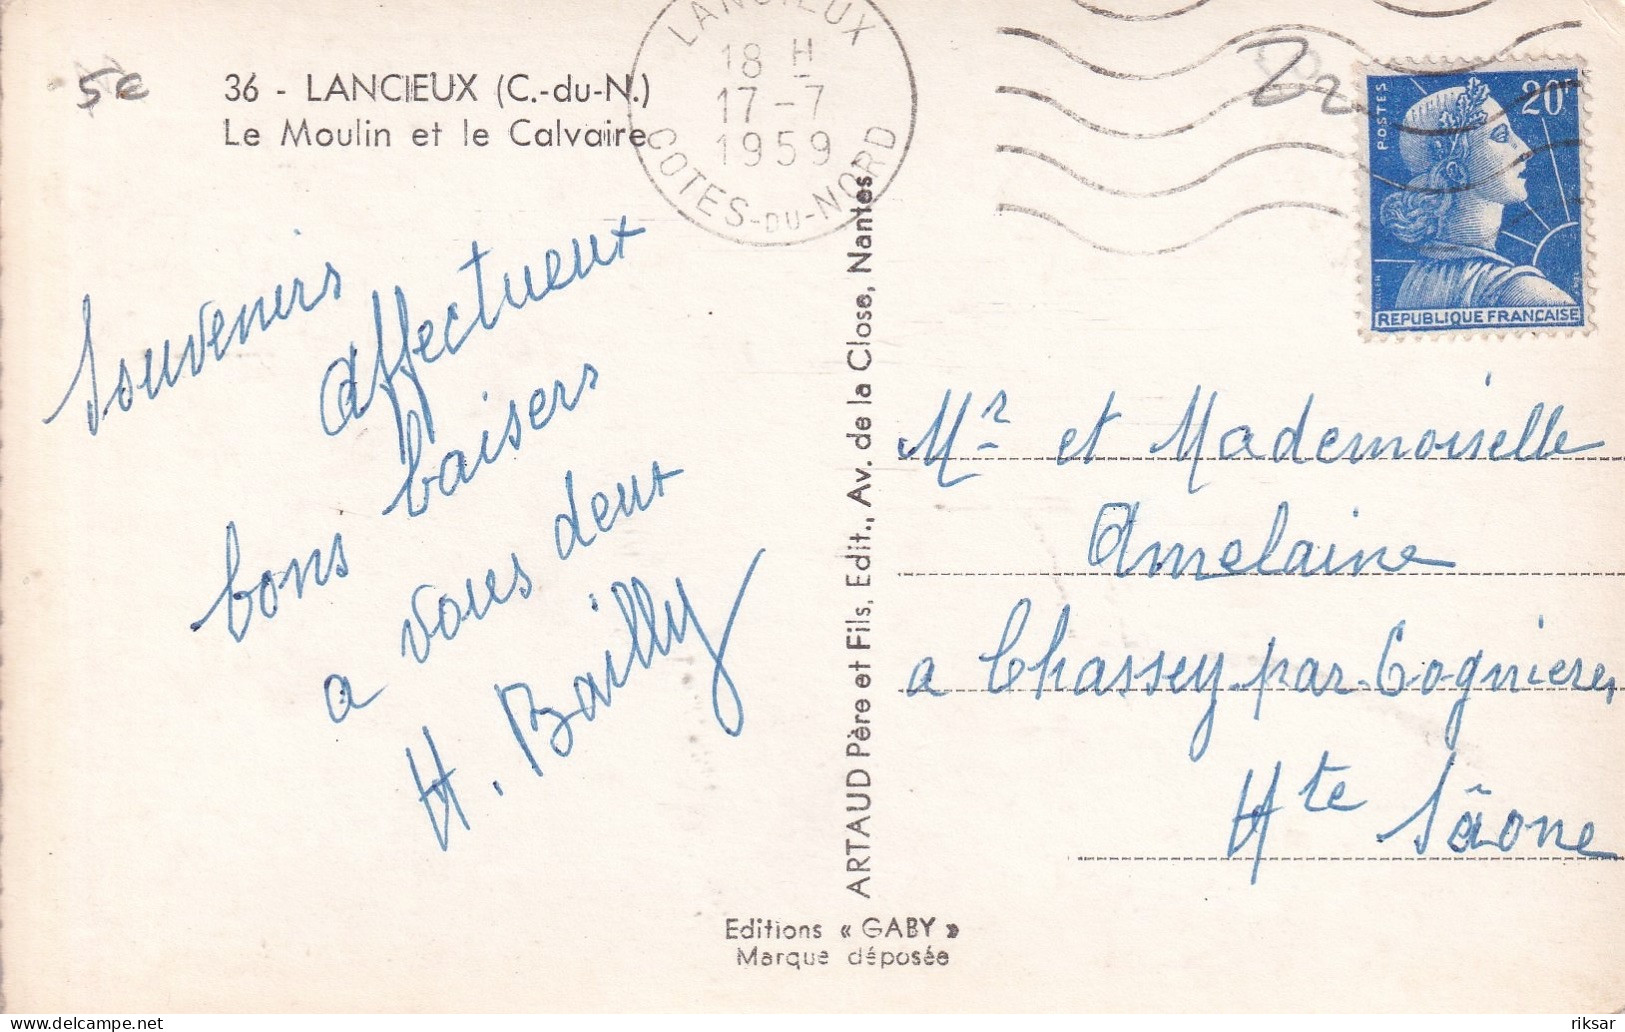 5€
36 - LANCIEUX (C.-du-N.)
Le Moulin et le Calvaire
LANCIEUX
18 H
17-7
1959
COTES-DU-NORD
22
POSTES
20F
MULLER
REPUBLIQUE FRANCAISE
Souvenirs
affectueux
bons baisers
a vous deux
H. Bailly
ARTAUD Père et Fils, Edit., Av. de la Close, Nantes
Mr et Mademoiselle
Amelaine
a Chassey par Cognieres
Hte Sâone
Editions « GABY »
Marque déposée
riksar